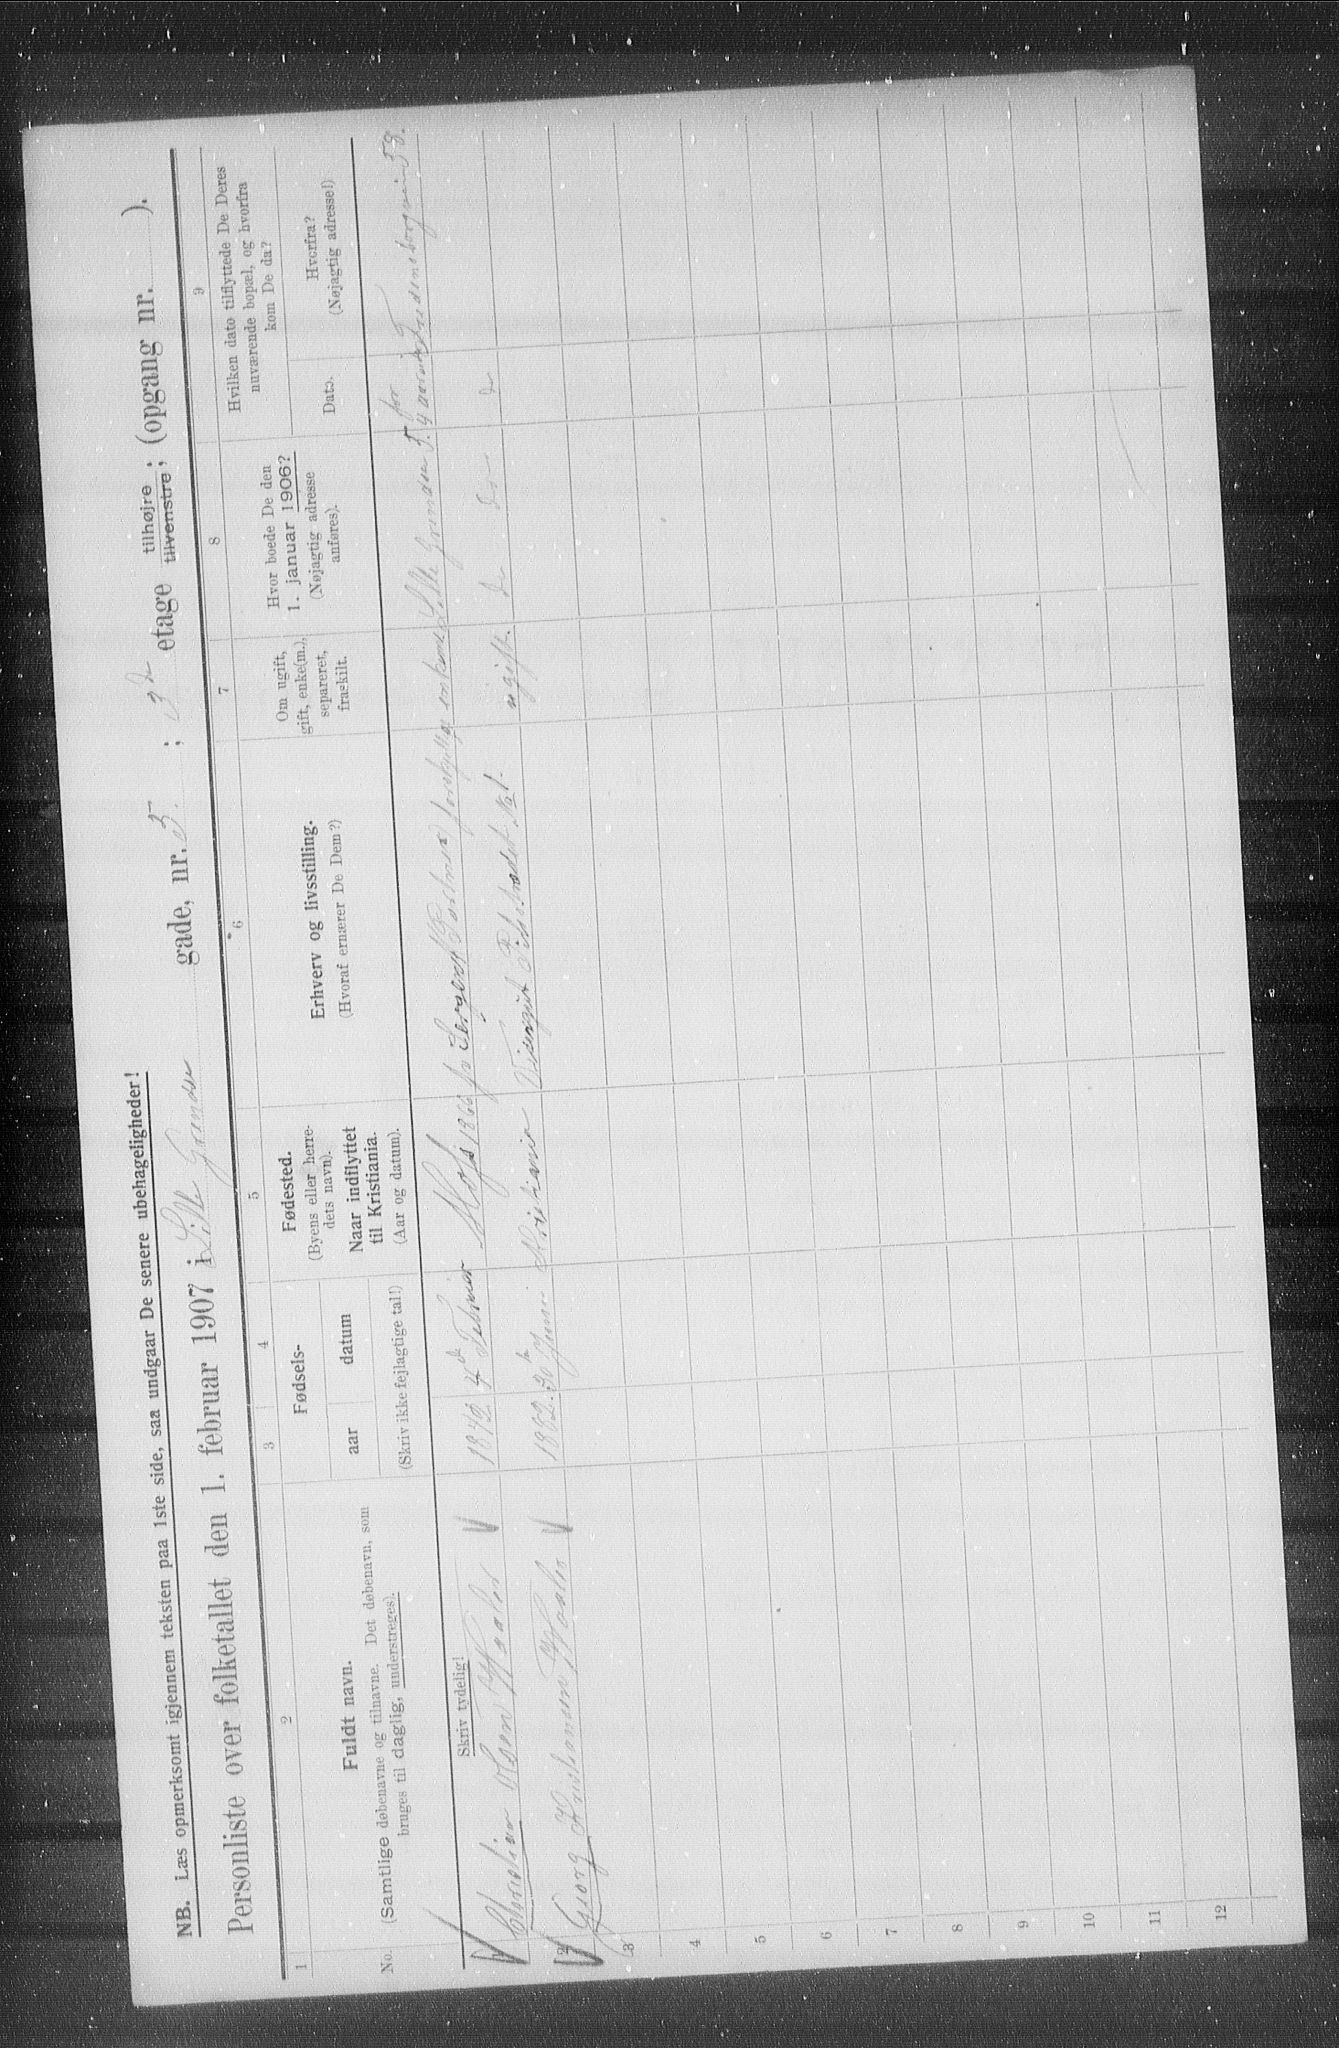 NB. Læs opmerksomt igjennem teksten paa 1ste side, saa undgaar De senere ubehageligheder!
Personliste over folketallet den 1. februar 1907 i Lille Grændsen gade, nr. 5. ; 3de etage tilhøjre ; tilvenstre ; (opgang nr. ).
1 2 3 4 5 6 7 8 9
No.
Fuldt navn.
(Samtlige døbenavne og tilnavne. Det døbenavn, som
bruges til daglig, understreges).
Fødsels-
aar datum
(Skriv ikke fejlagtige tal!)
Fødested.
(Byens eller herre-
dets navn).
Naar indflyttet
til Kristiania.
(Aar og datum).
Erhverv og livsstilling.
(Hvoraf ernærer De Dem?)
Om ugift,
gift, enke(m.),
separeret,
fraskilt.
Hvor boede De den
1. januar 1906?
(Nøjagtig adresse
anføres).
Hvilken dato tilflyttede De Deres
nuværende bopæl, og hvorfra
kom De da?
Dato.
Hvorfra?
(Nøjagtig adresse!)
Skriv tydelig!
Christian Olsen Haaler V 1842 4de Februar Moss 1860 enkem. Lille Grændsen 5. for
2 Georg Haaler V 1882. 30te Juni Kristiania ugift. do do do
3
4
5
6
7
8
9
10
11
12